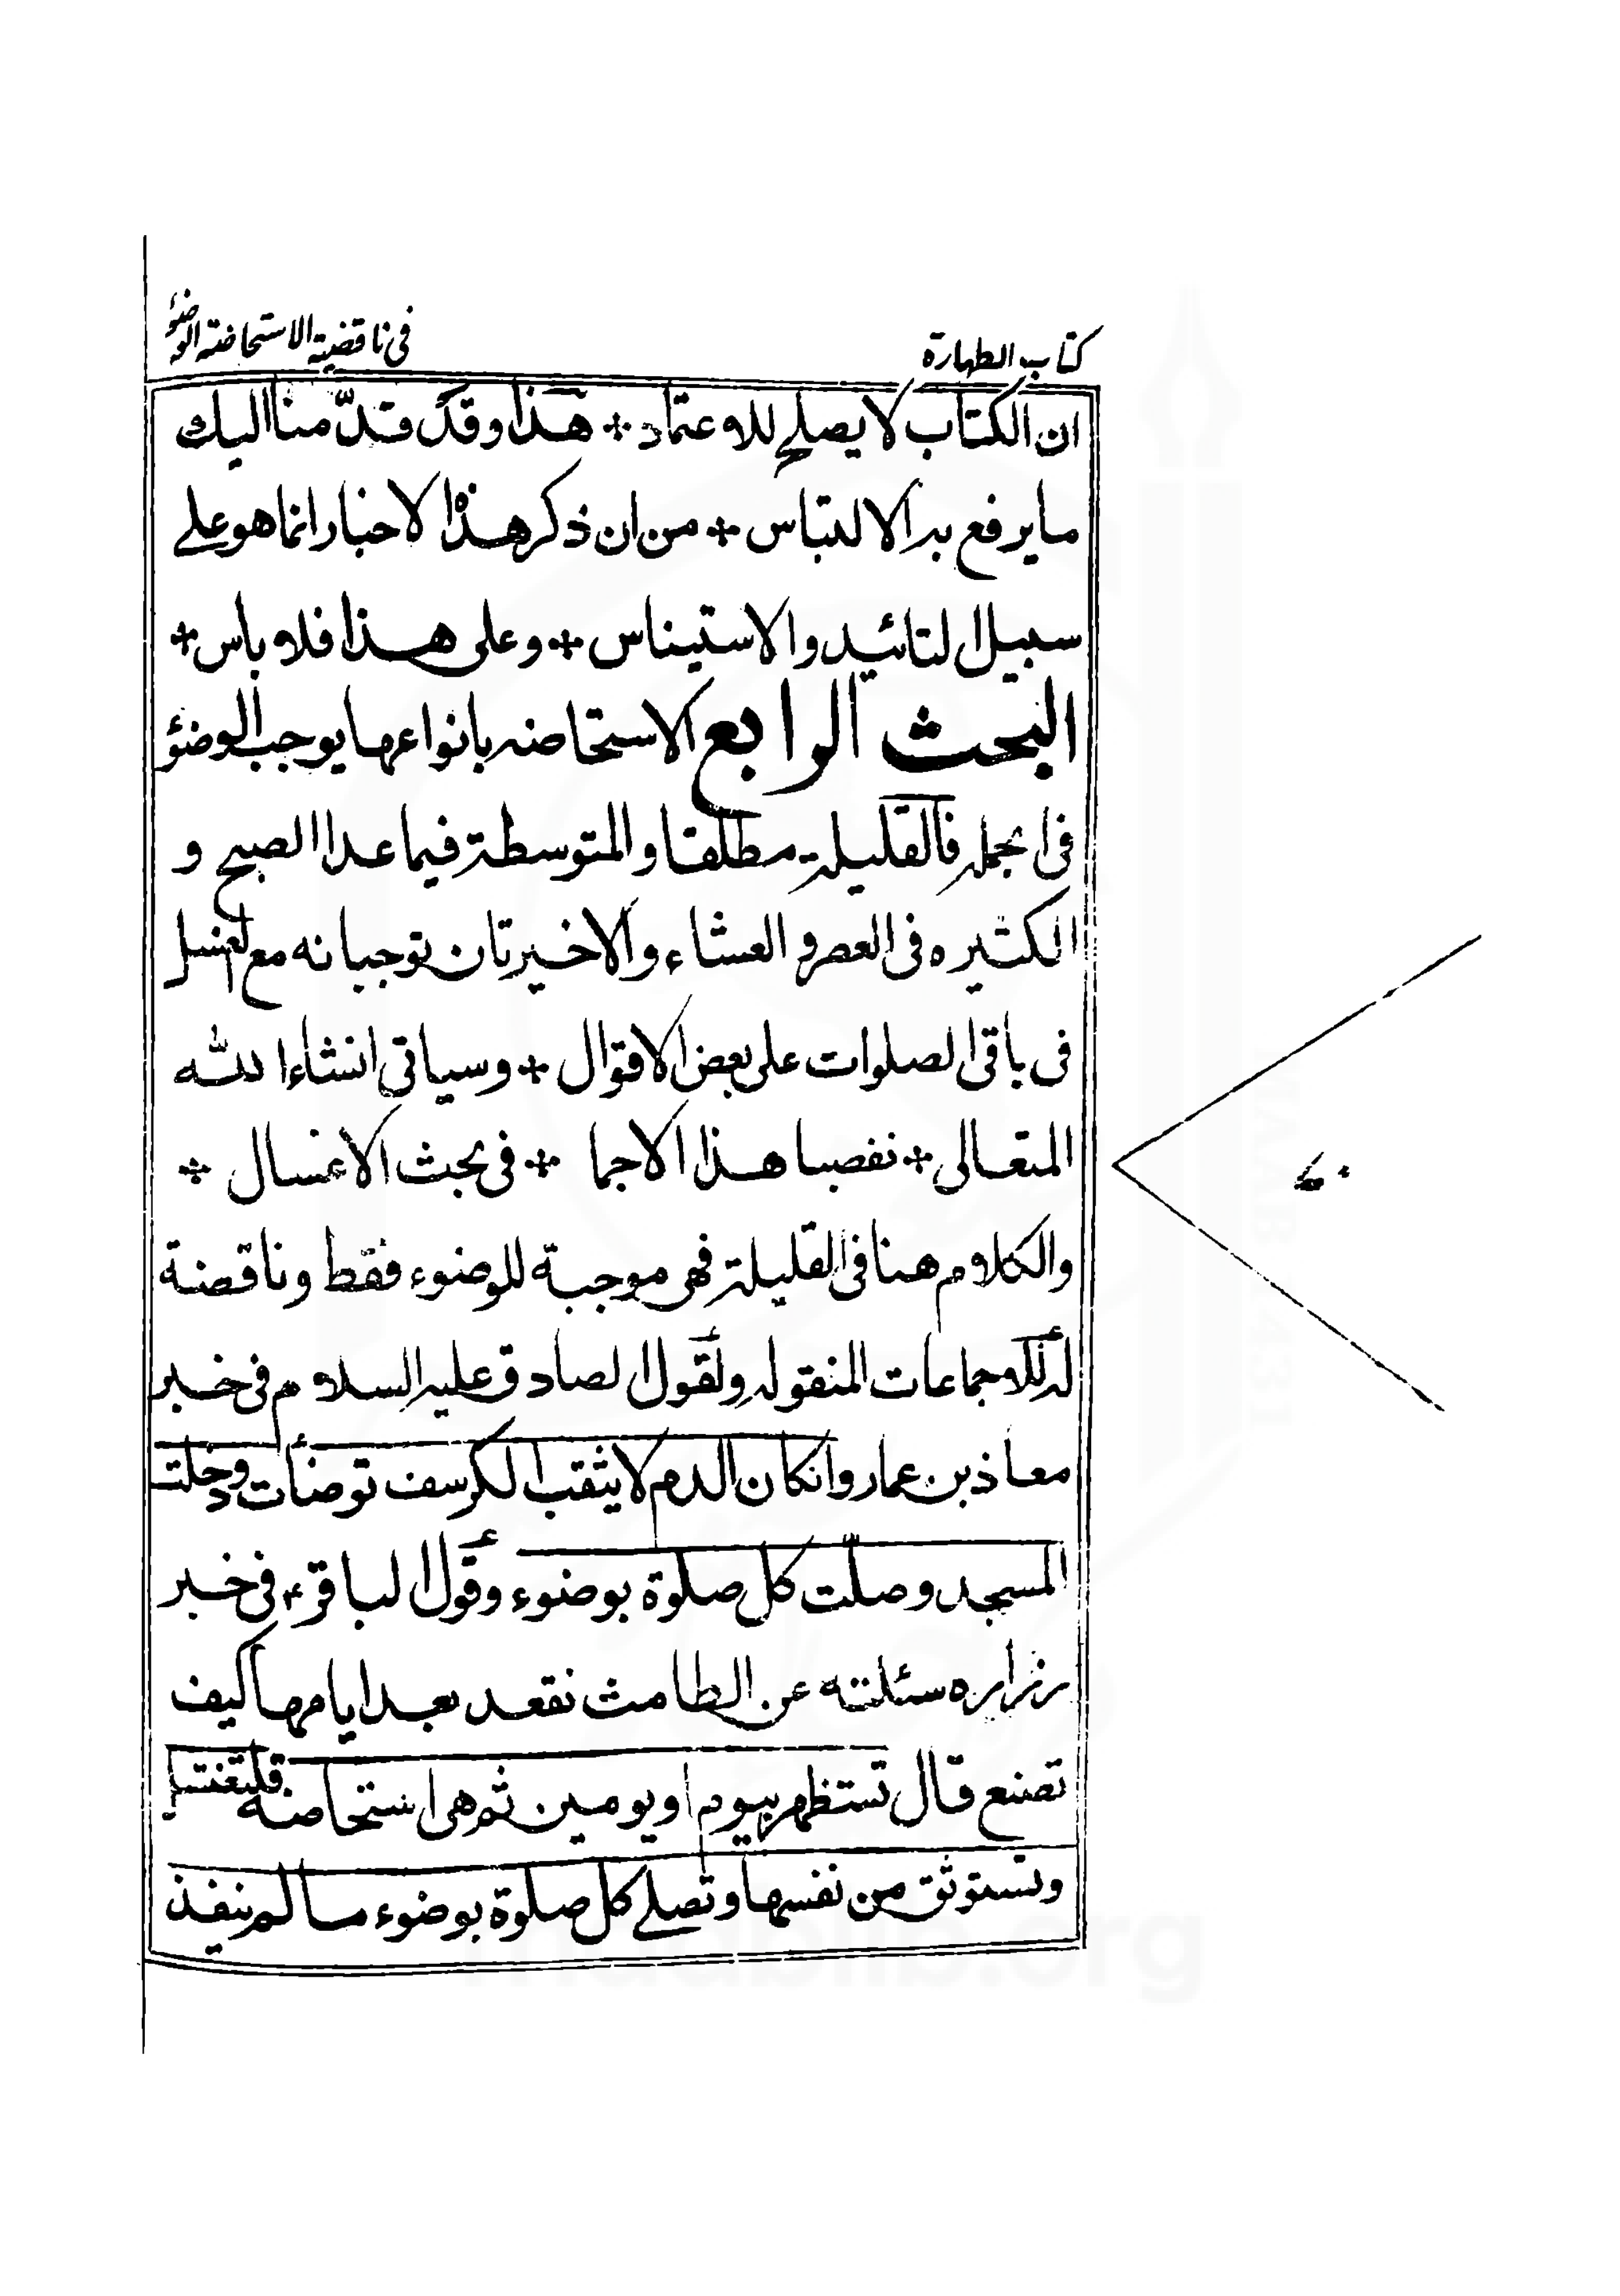 كتاب الطهارة
فى ناقضية الاستحاضة الوضؤ
ان الكتاب لا يصلح للاعتماد * هذا وقد قدّمنا اليك
ما يرفع به الالتباس * من ان ذكر هذه الاخبار انما هو على
سبيل التائيد والاستيناس * وعلى هذا فلا باس *
البحث الرابع الاستحاضه بانواعها يوجب الوضؤ
فى الجمله فالقليلة مطلقا والمتوسطة فيما عدا الصبح و
الكثيره فى العصر و العشاء والاخيرتان توجبانه مع الغسل
فى باقى الصلوات على بعض الاقوال * وسياتى انشاء الله
المتعالى * تفصيا هذا الاجما * فى بحث الاغسال *
والكلام هنا فى القليلة فهى موجبة للوضوء فقط وناقضة
له للاجماعات المنقوله ولقول الصادق عليه السلام فى خبر
معاذ بن عمار وانكان الدم لا يثقب الكرسف توضأت ودخلت
المسجد وصلّت كل صلوة بوضوء وقول الباقر ع فى خبر
زراره سئلته عن الطامث تقعد بعد ايامها كيف
تصنع قال تستظهر بيوم او يومين ثم هى استحاضه فلتغتسل
وتستوثق من نفسها وتصلى كل صلوة بوضوء ما لم ينفذ